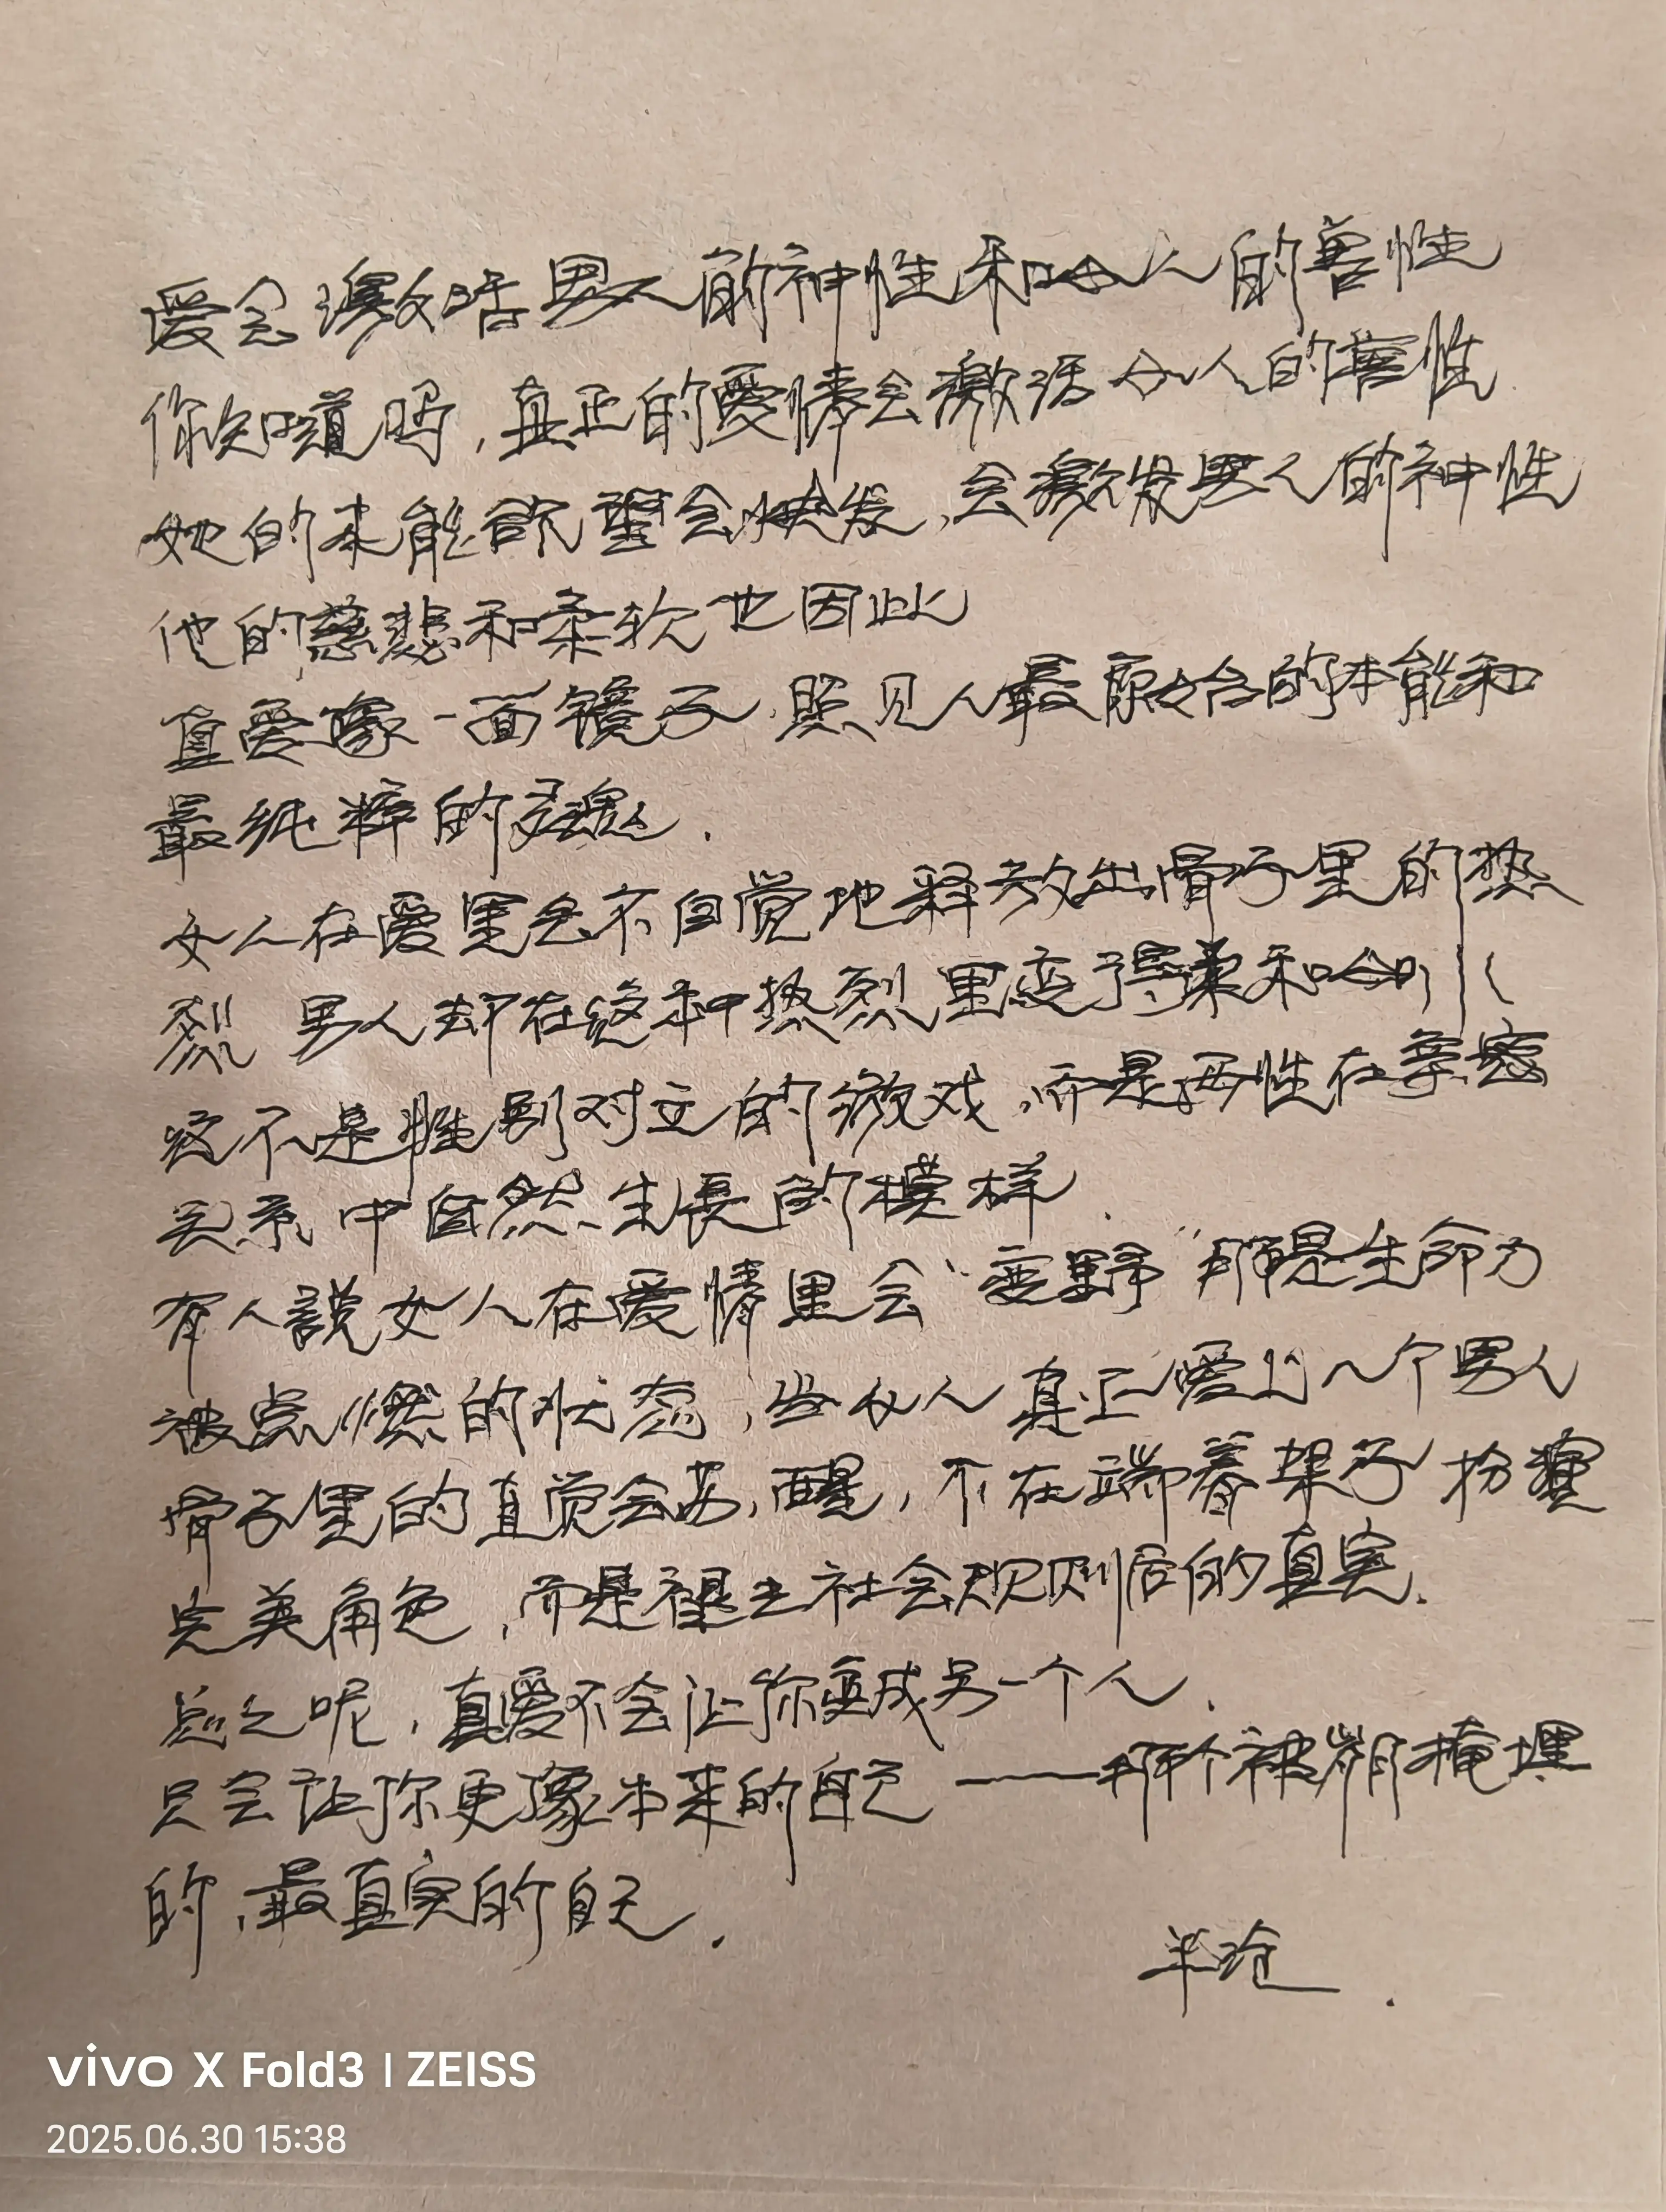 爱会激活男人的神性和女人的兽性
你知道吗，真正的爱情会激活女人的兽性
她的本能欲望会焕发，会激发男人的神性
他的慈悲和柔软也因此
真爱像一面镜子，照见人最原始的本能和
最纯粹的灵魂．
女人在爱里会不自觉地释放出骨子里的热
烈 男人却在这种热烈里变得柔和
这不是性别对立的游戏，而是两性在亲密
关系中自然生長的模样．
有人說女人在爱情里会“变野”那是生命力
被点燃的状态，当女人真正爱上一个男人
骨子里的直觉会苏醒，不在端着架子扮演
完美角色，而是褪去社会规则后的真实．
总之呢，真爱不会让你变成另一个人．
只会让你更像本来的自己——那个被掩埋
的，最真实的自己．
vivo X Fold3 | ZEISS
2025.06.30 15:38